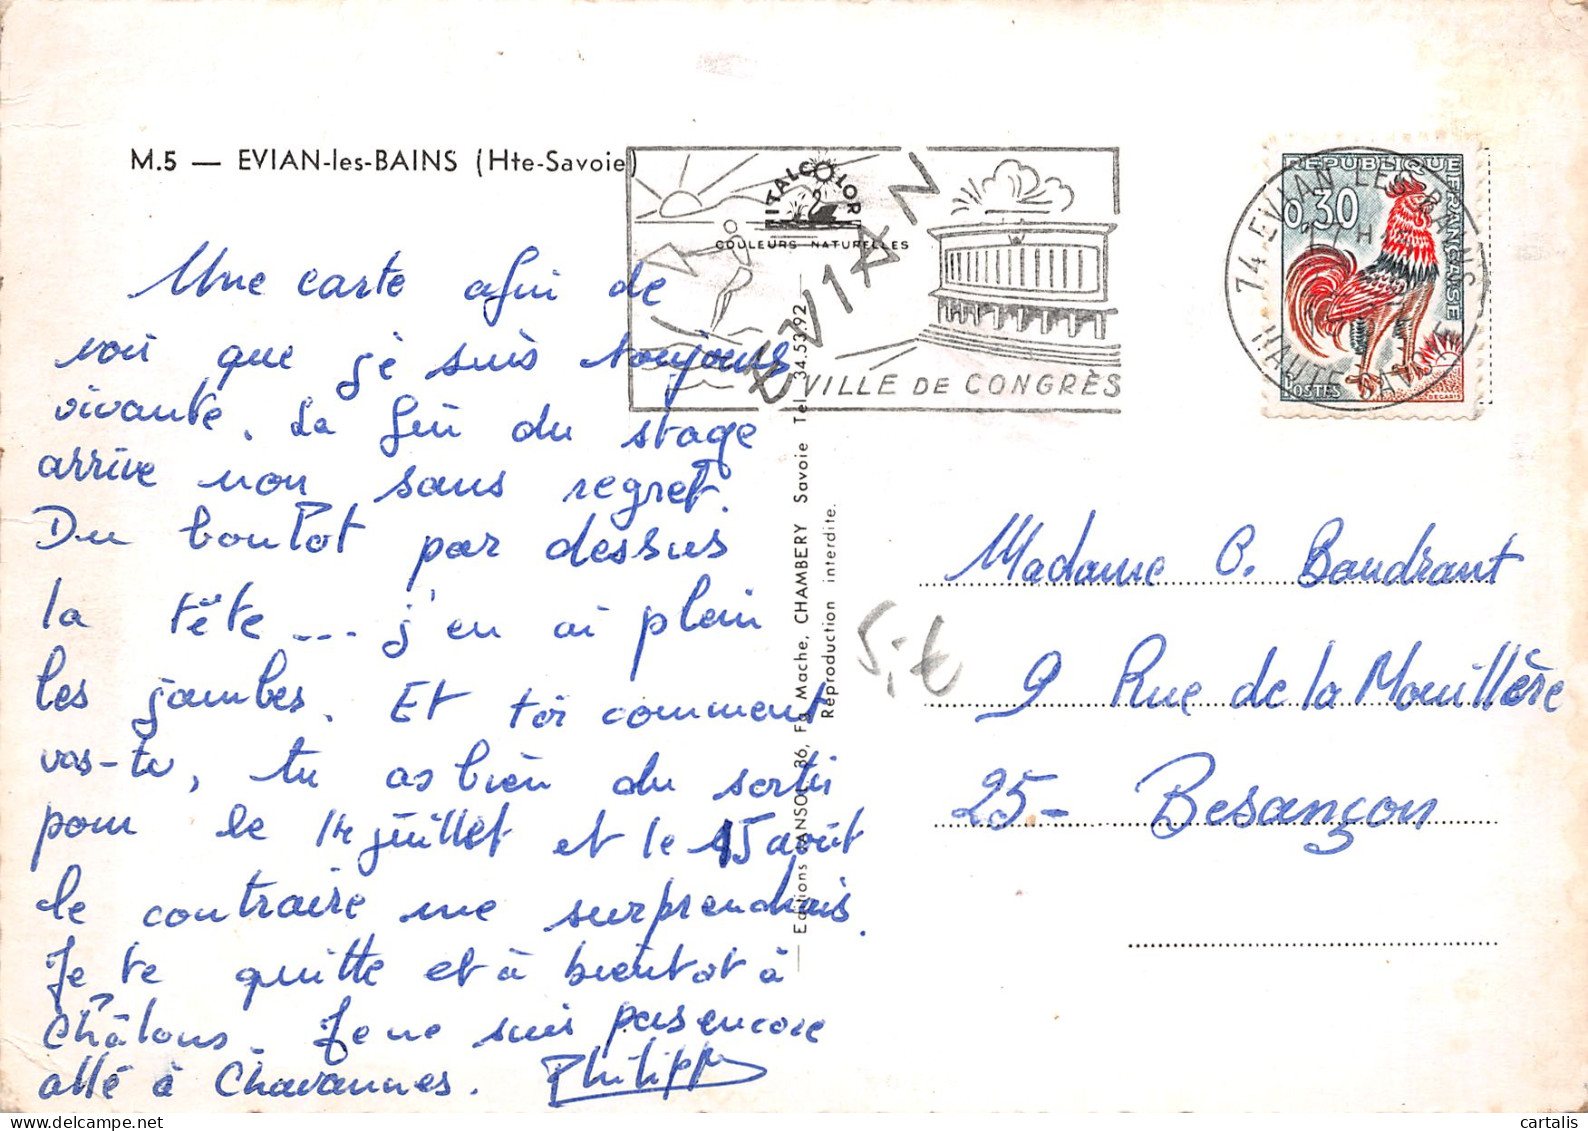 M.5 — EVIAN-les-BAINS (Hte-Savoie)
ITALCOLOR
COULEURS NATURELLES
EVIAN
VILLE DE CONGRÈS
REPUBLIQUE FRANÇAISE
0,30
POSTES
DECARIS
74 EVIAN LES BAINS
HAUTE SAVOIE
Une carte afin de
voir que je suis toujours
vivante. La fin du stage
arrive non sans regret.
Du boulot par dessus
la tête --- j'en ai plein
les jambes. Et toi comment
vas-tu, tu as bien du sortir
pour le 14 juillet et le 15 août
le contraire me surprendrais.
Je te quitte et à bientôt à
Châlons. Je ne suis pas encore
allé à Chavannes. Philippe
Editions JANSOL, 36, Fg Mache, CHAMBERY Savoie Tel. 34.53.92
Reproduction interdite.
Madame C. Baudrant
9 Rue de la Mouillère
25- Besançon
cartalis